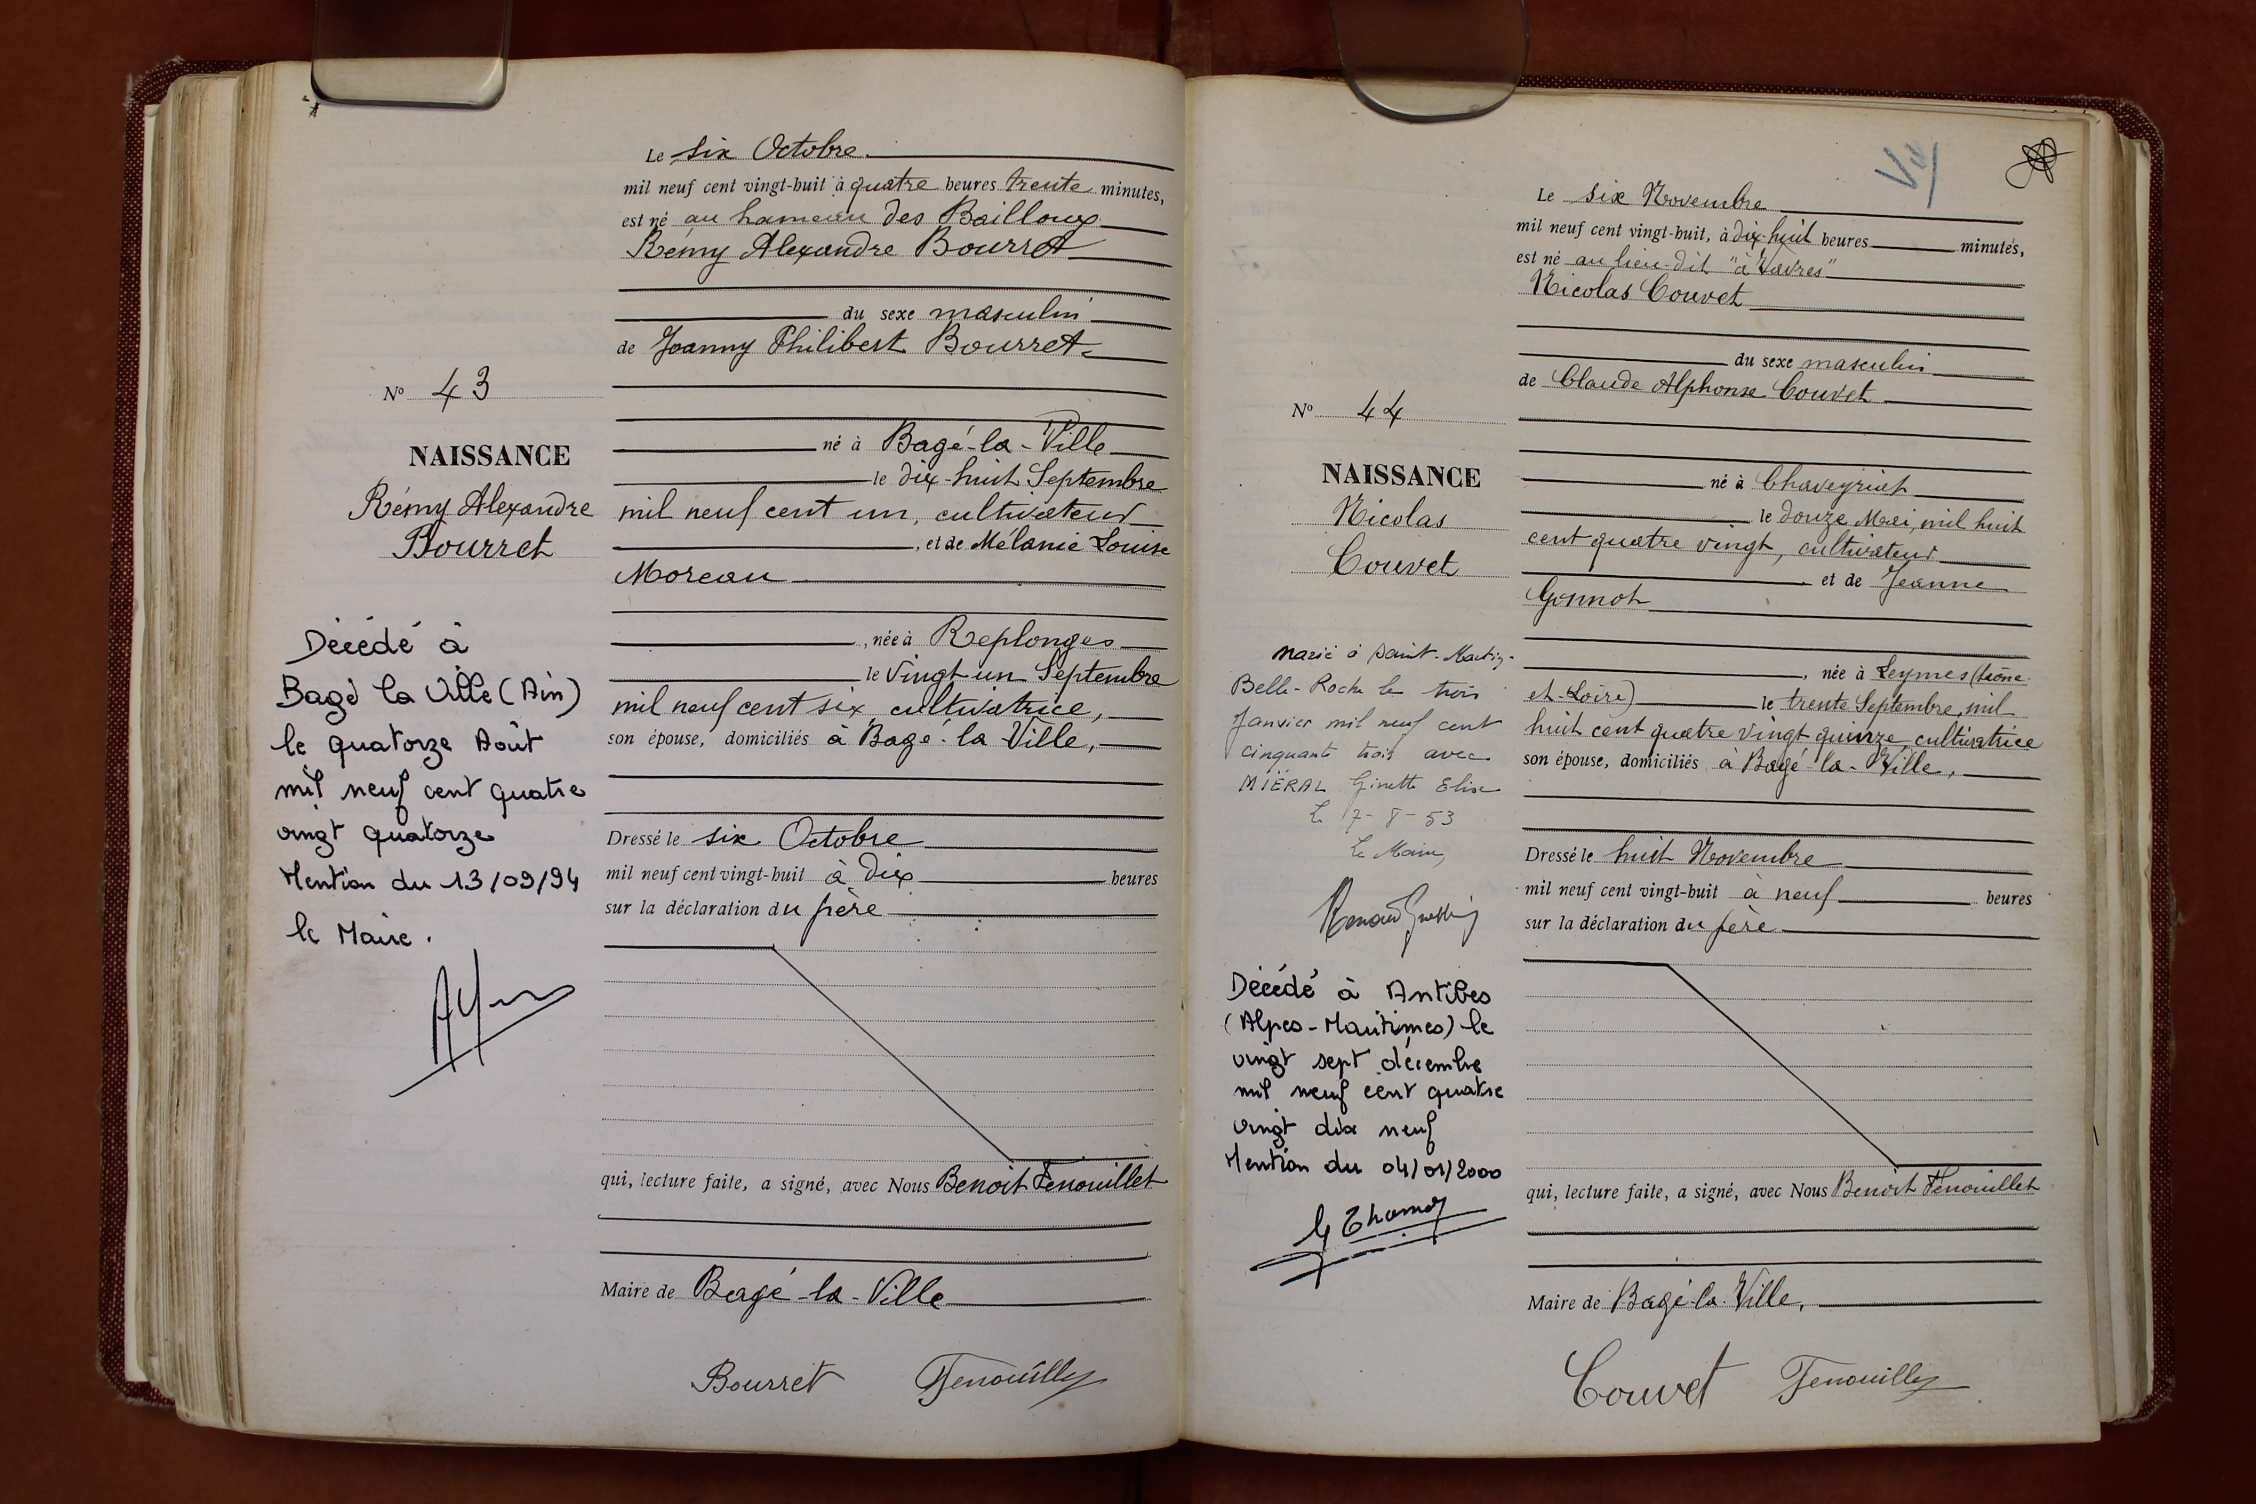 Le six Octobre
mil neuf cent vingt-huit à quatre heures trente minutes,
est né au hameau des Bailloux
Rémy Alexandre Bourret
du sexe masculin
de Joanny Philibert Bourret
né à Bagé-la-Ville
le dix-huit Septembre
mil neuf cent un, cultivateur
, et de Mélanie Louise
Moreau
, née à Replonges
le vingt un Septembre
mil neuf cent six cultivatrice,
son épouse, domiciliés à Bagé-la-Ville,
Dressé le six Octobre
mil neuf cent vingt-huit à dix heures
sur la déclaration du père
qui, lecture faite, a signé, avec Nous Benoit Fenouillet
Maire de Bagé-la-Ville
Bourret Fenouillet
N° 43
NAISSANCE
Rémy Alexandre
Bourret
Décédé à
Bagé la Ville (Ain)
le quatorze Août
mil neuf cent quatre
vingt quatorze
Mention du 13/09/94
le Maire.
Vu
Le six Novembre
mil neuf cent vingt-huit, à dix-huit heures minutes,
est né au lieu-dit "à Vavres"
Nicolas Couvet
du sexe masculin
de Claude Alphonse Couvet
né à Chaveyriat
le douze Mai, mil huit
cent quatre vingt, cultivateur
et de Jeanne
Gonnot
, née à Leynes (Saône-
et-Loire) le trente Septembre, mil
huit cent quatre vingt quinze, cultivatrice
son épouse, domiciliés à Bagé-la-Ville,
Dressé le huit Novembre
mil neuf cent vingt-huit à neuf heures
sur la déclaration du père
qui, lecture faite, a signé, avec Nous Benoit Fenouillet
Maire de Bagé-la-Ville,
Couvet Fenouillet
N° 44
NAISSANCE
Nicolas
Couvet
Marié à Saint-Martin-
Belle-Roche le trois
Janvier mil neuf cent
cinquante trois avec
MIÉRAL Ginette Elise
Le 7-8-53
Le Maire,
Décédé à Antibes
(Alpes-Maritimes) le
vingt sept décembre
mil neuf cent quatre
vingt dix neuf
Mention du 04/01/2000